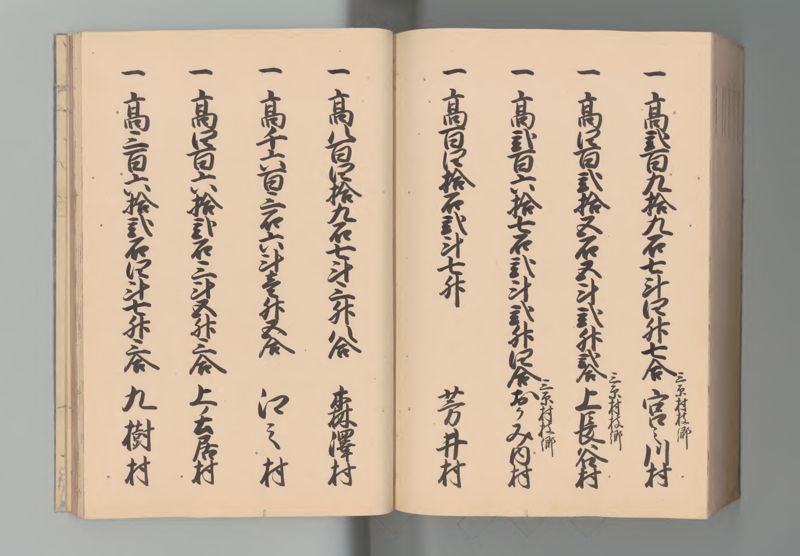 一 高弐百九拾九石七斗四升七合 三ヶ村枝郷 宮之川村
一 高四百弐拾五石五斗弐升弐合 三ヶ村枝郷 上長谷村
一 高弐百六拾七石弐斗弐升四合 三ヶ村枝郷 おうみ内村
一 高百四拾石弐斗七升 芳井村
一 高八百四拾九石七斗三升八合 森澤村
一 高千六百三石六斗壱升五合 江之村
一 高四百六拾弐石三斗五升三合 上ノ土居村
一 高三百六拾弐石四斗七升三合 九樹村